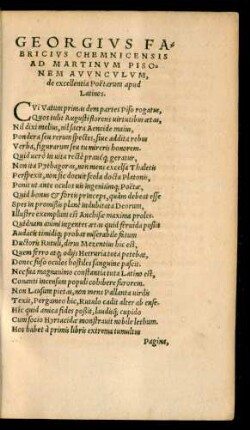 GEORGIVS FA-
BRICIVS CHEMNICENSIS
AD MARTINVM PISO-
NEM AVVNCVLVM,
de excellentia Poëtarum apud
Latinos.
CVi Vatum primas dem partes Piso rogatus,
Quot tulit Augusti florens virtutibus ætas,
Nil dixi melius, nil sacra Aeneide maius,
Pondera seu rerum spectes, siue addita rebus
Verba, figurarum seu tu mireris honorem.
Quid uerò in uita rectè prauéq; geratur,
Non ita Pythagoras, non mens excelsa Thaletis
Perspexit, non sic docuit scola docta Platonis,
Ponit ut ante oculos uis ingeniumq; Poëtæ,
Quid bonus & fortis princeps, quàm debeat esse
Spes in promissis plena indubitata Deorum,
Illustre exemplum est Anchisæ maxima proles.
Quidnam animi ingentes
Audacis timidiq; probat miserabile fatum
Ductoris Rutuli, diris Mezentius hic est,
Quem ferro atq; odijs Hetruria tota petebat,
Donec fuso oculos hostdes sanguine pauit.
Nec fuga magnanimo constantia tuta Latino est,
Conanti incensum populi cohibere furorem.
Non Lausum pietas, non mens Pallanta uirilis
Texit, Perganto hic, Rutulo cadit alter ab ense.
Hic quid amica fides possit, laudisq; cupido
Cum socio Hyrtacidæ monstrauit nobile lethum.
Hos habet à primis libris extrema tumultus
Pagina,